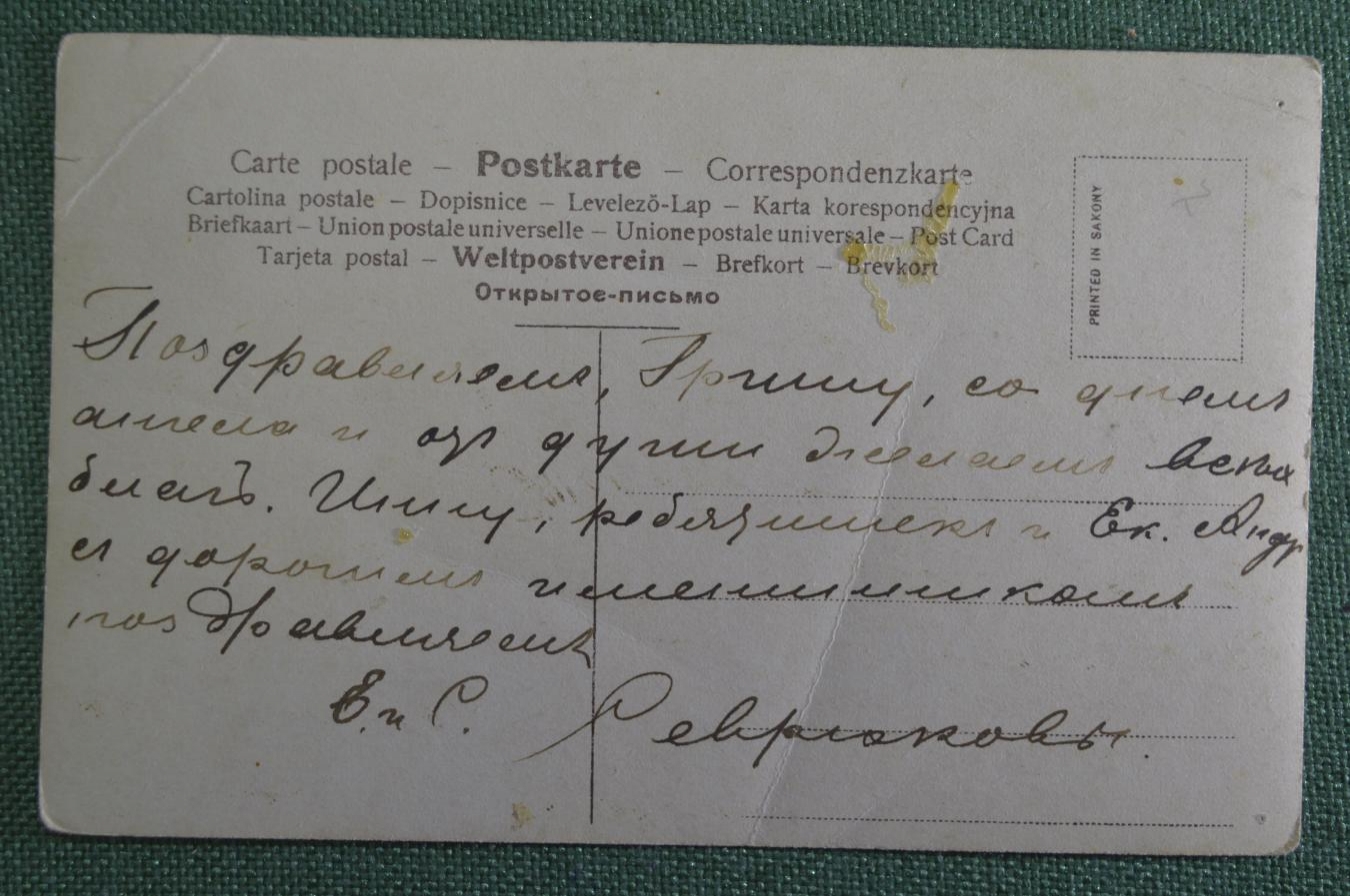 Carte postale – Postkarte – Correspondenzkarte
Cartolina postale – Dopisnice – Levelező-Lap – Karta korespondencyjna
Briefkaart – Union postale universelle – Unione postale universale – Post Card
Tarjeta postal – Weltpostverein – Brefkort – Brevkort
Открытое-письмо
PRINTED IN SAXONY
Поздравляемъ, Гришу, со днемъ
ангела и отъ души желаемъ всѣхъ
благъ. Шишу, ребятишекъ и Ек. Андр
съ дорогимъ именинникомъ
поздравляемъ
Е. и С. Севрюковы.